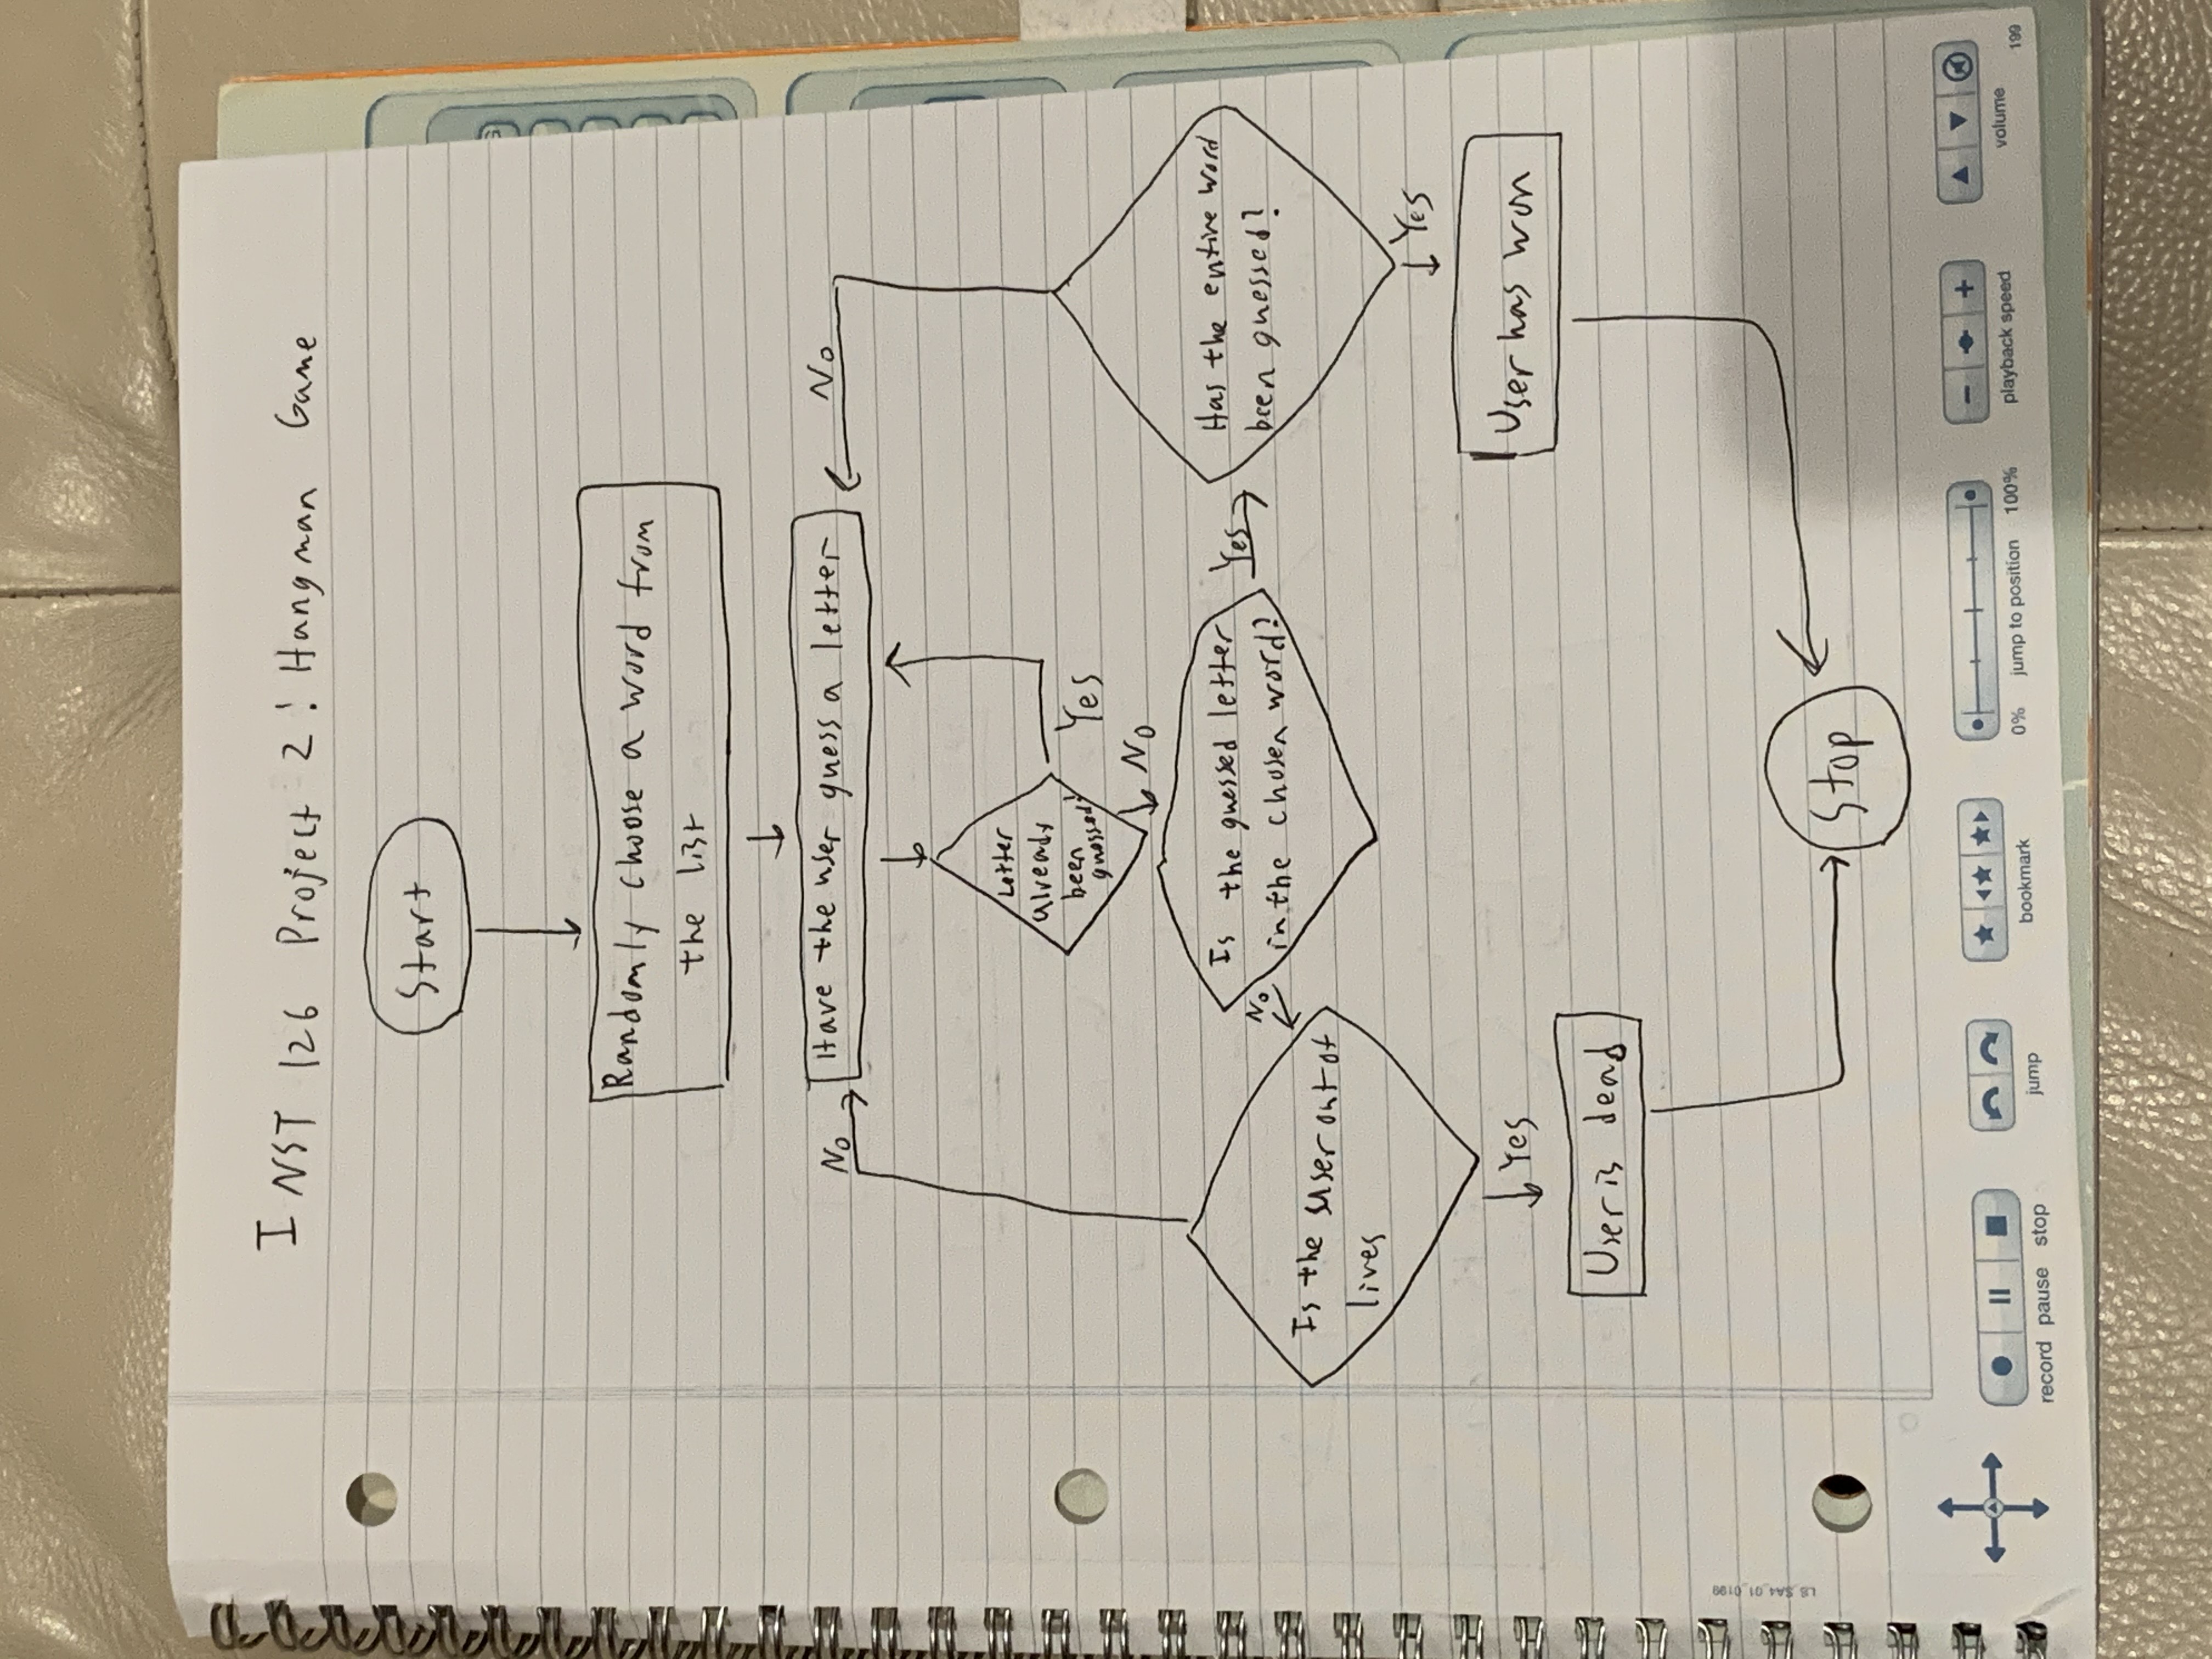 INST 126 Project 2: Hangman Game
Start
Randomly choose a word from
the list
Have the user guess a letter
No
No
Letter
already
been
guessed?
Yes
No
Is the guessed letter
in the chosen word?
No
Yes
Has the entire word
been guessed?
Is the user out of
lives
Yes
Yes
User is dead
User has won
Stop
LS_SA4_01_0199
record pause stop
jump
bookmark
0% jump to position 100%
playback speed
volume
199